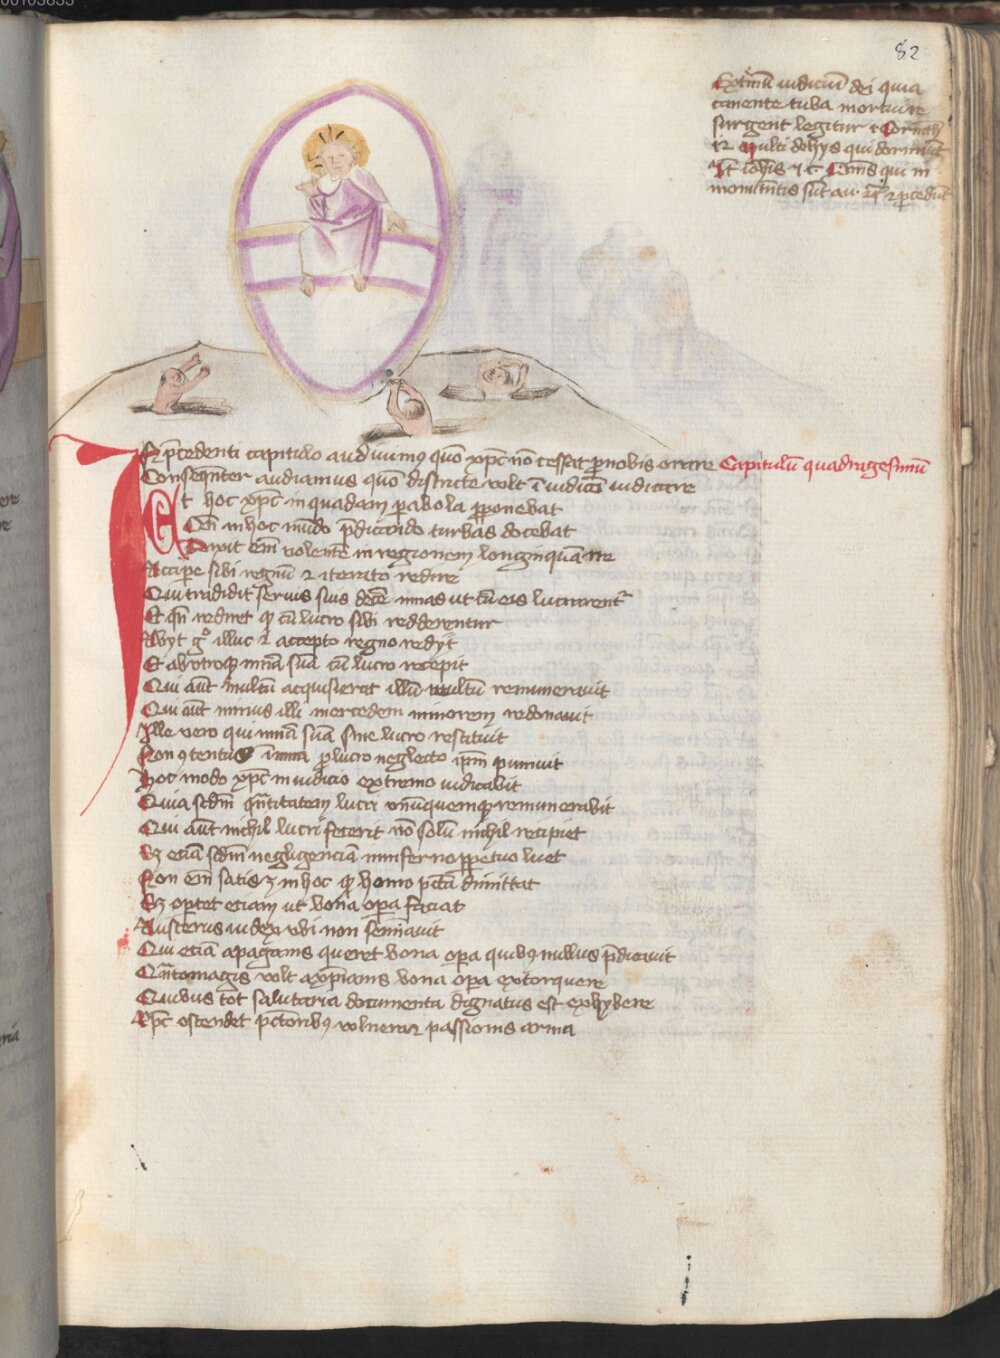 82
Extremū iudiciū dei quia
canente tuba mortui re
surgent legitur
multi de hys qui dormiūt
Oms qui in
monumtis sūt
In p̄cedenti capitulo audiuimꝰ quō xp̄c nō cessat p nobis orare Capitulū quadragesimū
Conseqnter audiamus quō districte volt ī iudicio iudicare
Et hoc xp̄c in quadam parabola pponebat
Cū in hoc mūdo p̄dicando turbas docebat
Homo quidā nobilis in regionem longinquā ire
Accipe sibi regnū ⁊ iterato redire
Qui tradidit seruis suis decē mnas ut cū eis lucrarent᷑
Et qn̄ rediret qꝫ cū lucro sibi redderentur
Abyt gͦ illuc ⁊ accepto regno redyt
Et ab vtroqꝫ mnā suā cū lucro recepit
Qui aūt multū acquisierat illū multū remunerauit
Qui aūt minus illi mercedem minorem redonauit
Ille vero qui mnā suā sine lucro restituit
Non ꝯtentus mna p lucro neglecto ip̄m puniuit
Hoc modo xp̄c in iudicio extremo iudicabit
Quia scd̄m qntitatem lucri vnūquemqꝫ remunerabit
Qui aūt nichil lucri fecerit nō solū nichil recipiet
Sꝫ eciā scd̄m negligenciā in inferno ppetuo luet
Non em̄ satis ꝫ in hoc qꝫ homo pctā dimittat
Sꝫ oportet eciam ut bona opa faciat
Austerus iudex vbi non semīauit
Qui eciā a paganis queret bona opa quibꝰ nullus p̄dicauit
Qntomagis volt a xp̄ianis bona opa extorquere
Quibus tot salutaria documenta dignatus est exhybere
Xp̄c ostendet pctoribꝰ vulnera ⁊ passionis arma